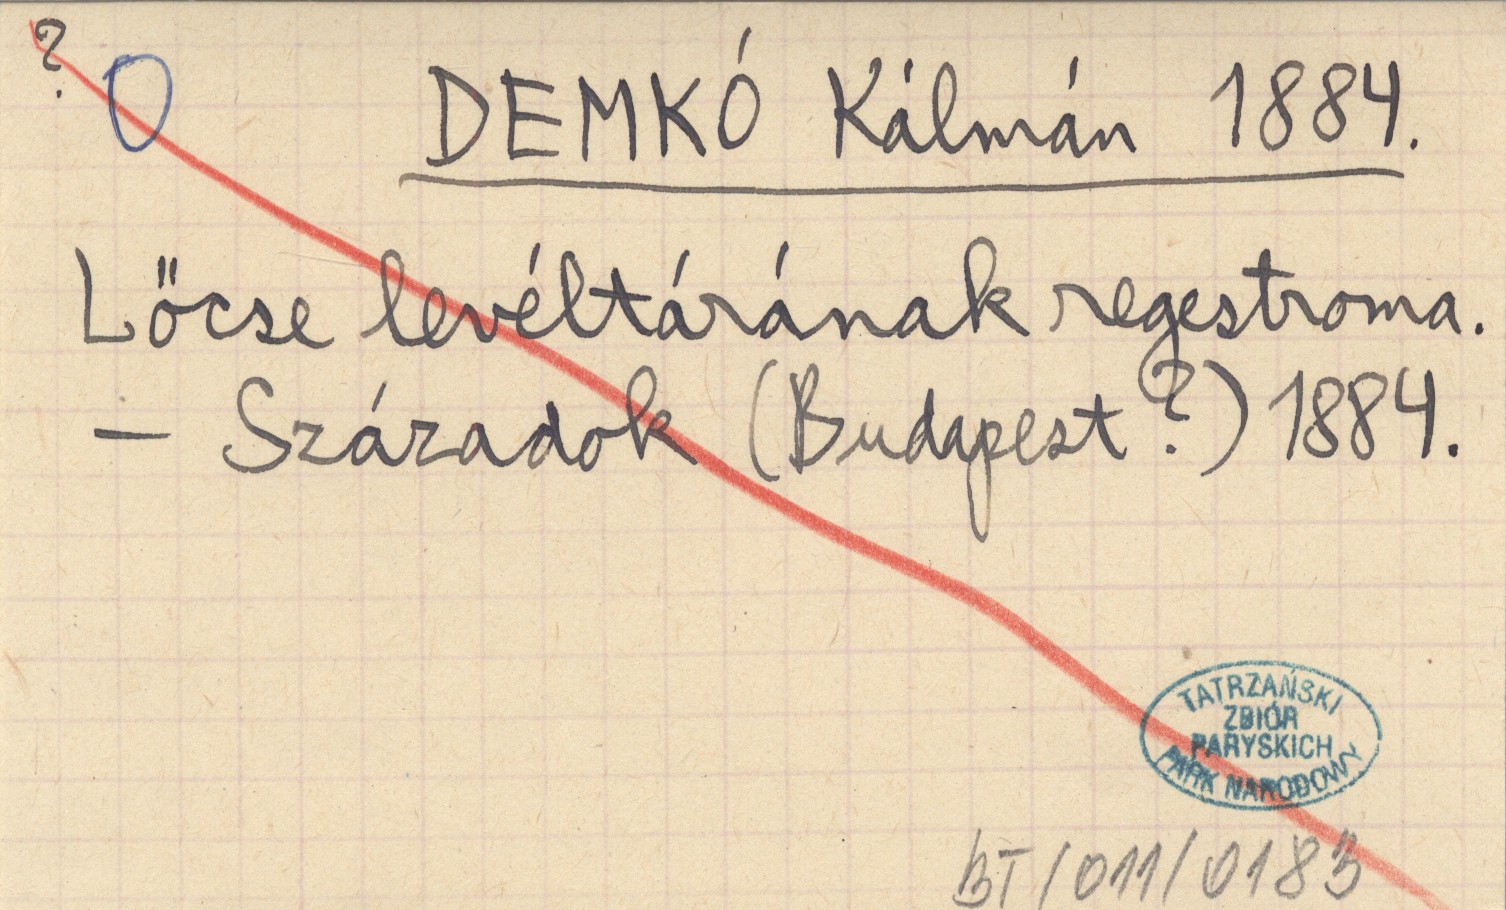 ?
DEMKÓ Kálmán 1884.
Lőcse levéltárának regestroma.
— Századok (Budapest?) 1884.
TATRZAŃSKI
ZBIÓR
PARYSKICH
PARK NARODOWY
BT/011/0183